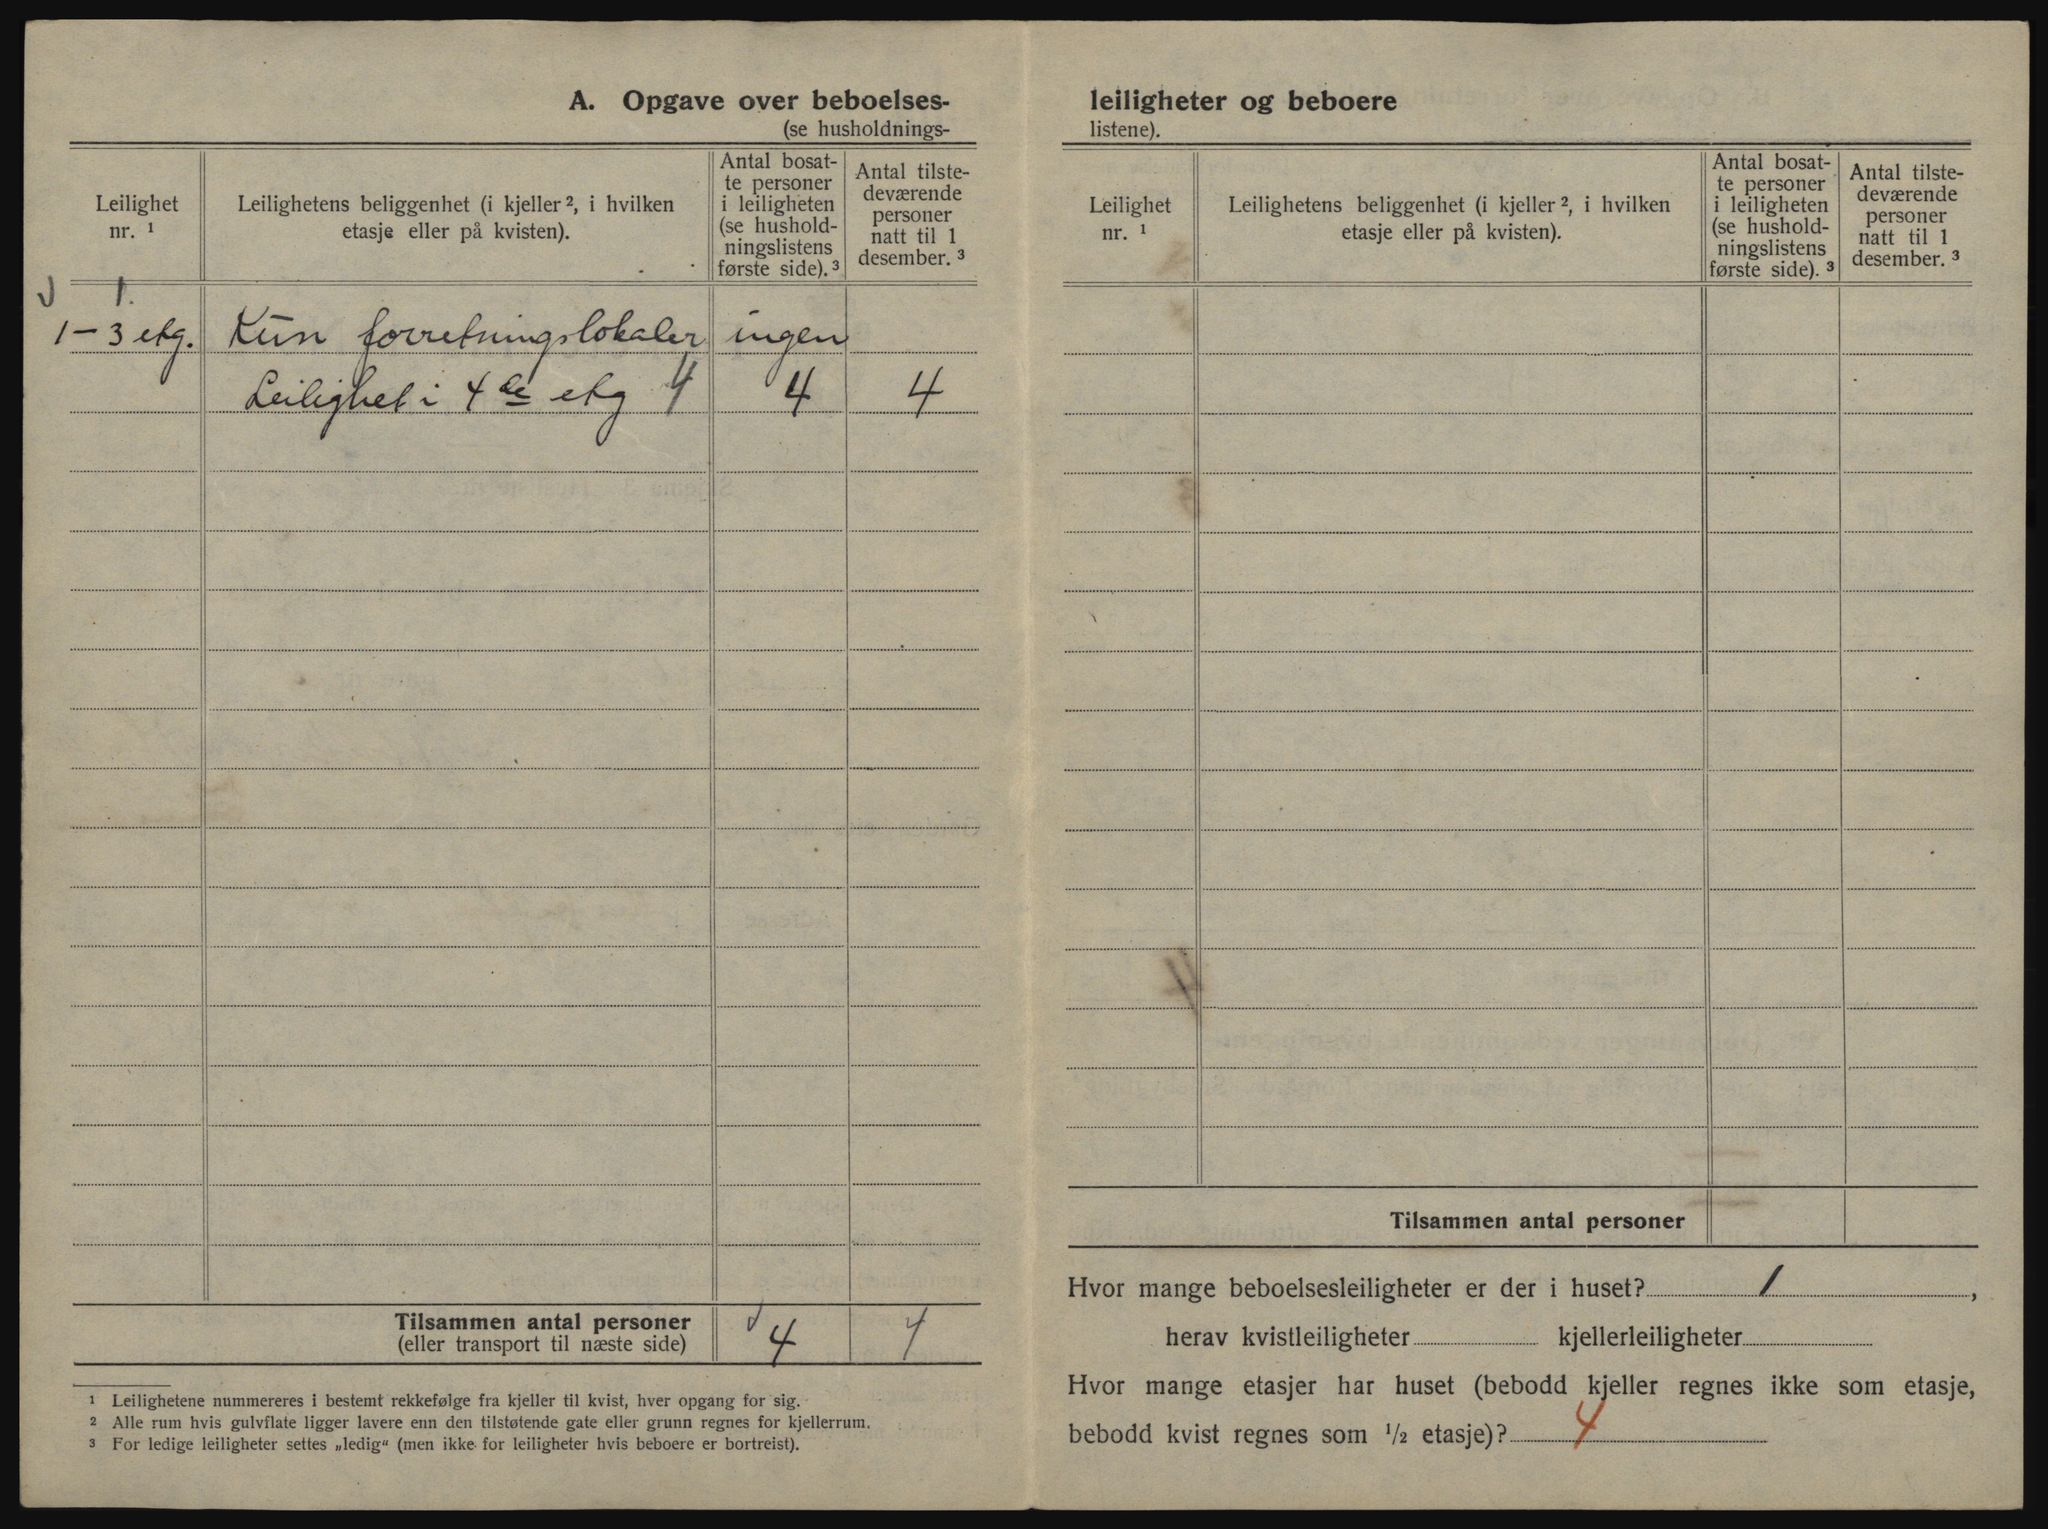 A. Opgave over beboelses-
(se husholdnings-
Leilighet
nr. ¹
Leilighetens beliggenhet (i kjeller ², i hvilken
etasje eller på kvisten).
Antal bosat-
te personer
i leiligheten
(se hushold-
ningslistens
første side). ³
Antal tilste-
deværende
personer
natt til 1
desember. ³
1.
1 – 3 etg. Kun forretningslokaler ingen
Leilighet i 4de etg 4 4 4
Tilsammen antal personer
(eller transport til næste side)
4 4
¹ Leilighetene nummereres i bestemt rekkefølge fra kjeller til kvist, hver opgang for sig.
² Alle rum hvis gulvflate ligger lavere enn den tilstøtende gate eller grunn regnes for kjellerrum.
³ For ledige leiligheter settes „ledig“ (men ikke for leiligheter hvis beboere er bortreist).
leiligheter og beboere
listene).
Leilighet
nr. ¹
Leilighetens beliggenhet (i kjeller ², i hvilken
etasje eller på kvisten).
Antal bosat-
te personer
i leiligheten
(se hushold-
ningslistens
første side). ³
Antal tilste-
deværende
personer
natt til 1
desember. ³
Tilsammen antal personer
Hvor mange beboelsesleiligheter er der i huset? 1,
herav kvistleiligheter kjellerleiligheter
Hvor mange etasjer har huset (bebodd kjeller regnes ikke som etasje,
bebodd kvist regnes som ½ etasje)? 4